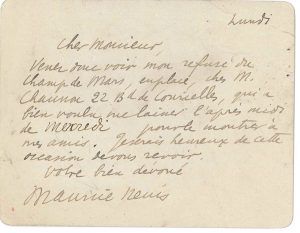 Lundi
Cher Monsieur,
Venez donc voir mon refusé du
Champ de Mars, en place, chez M.
Chausson 22 Bd de Courcelles, qui a
bien voulu me laisser l'après midi
de Mercredi pour le montrer à
mes amis. Je serais heureux de cette
occasion de vous revoir.
Votre bien dévoué
Maurice Denis